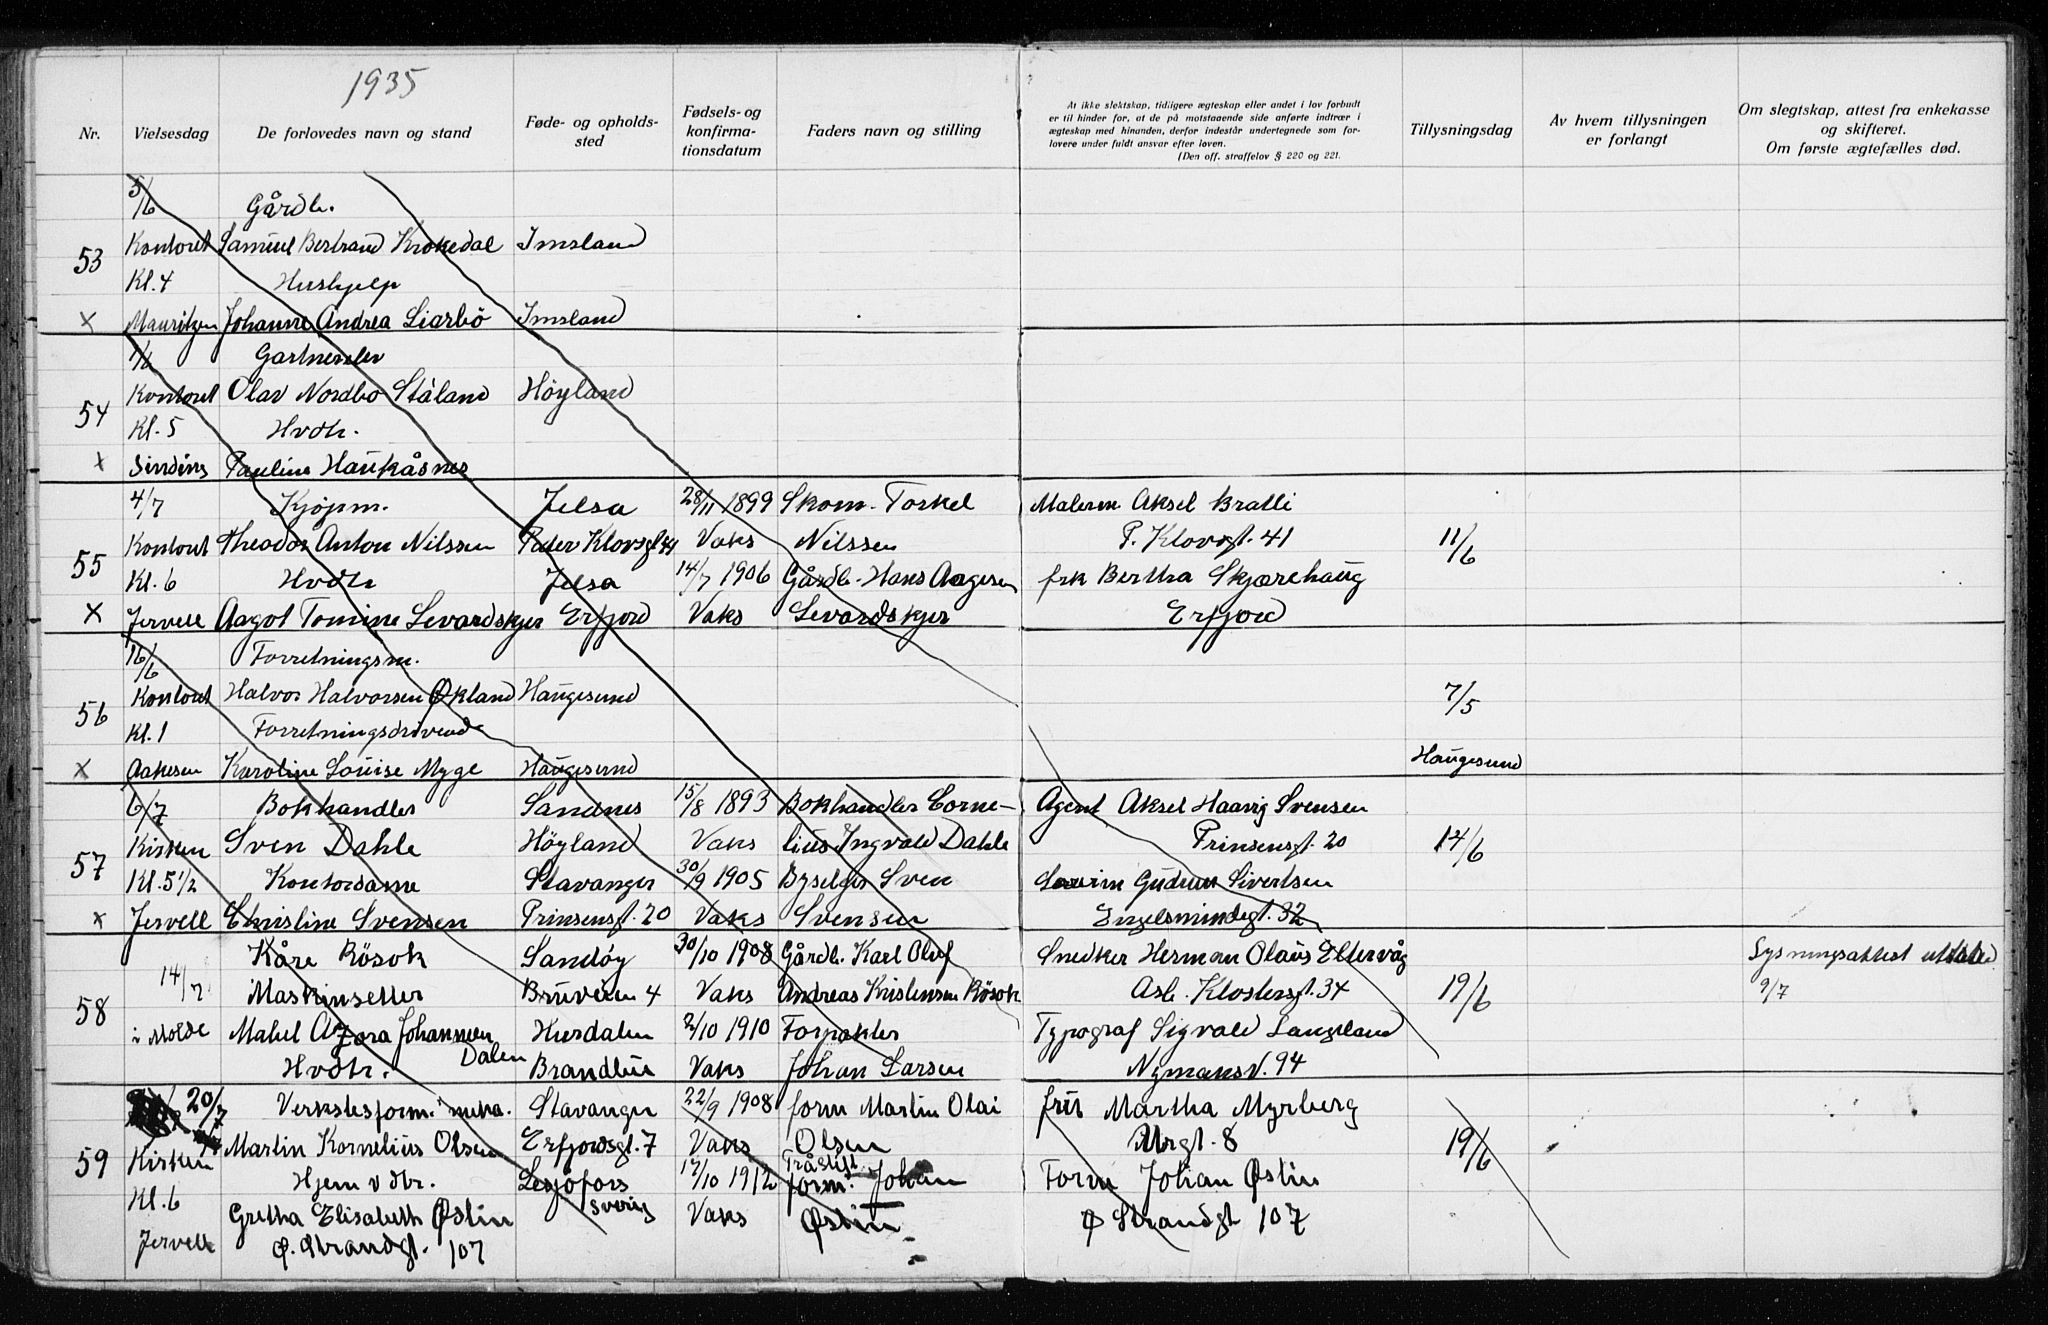 1935
Nr. Vielsesdag De forlovedes navn og stand Føde- og opholds-sted Fødsels- og konfirma-tionsdatum Faders navn og stilling At ikke slektskap, tidligere ægteskap eller andet i lov forbudt er til hinder for, at de på motstaaende side anførte indtrær i ægteskap med hinanden, derfor indestår undertegnede som for-lovere under fuldt ansvar efter loven. (Den off. straffelov § 220 og 221. Tillysningsdag Av hvem tillysningen er forlangt Om slegtskap, attest fra enkekasse og skifteret. Om første ægtefælles død.
5/6 Gårdbr.
53 Kontoret Samuel Bertrand Krokedal Imsland
Kl. 4 Hushjelp
x Mauritzen Johanne Andrea Liarbö Imsland
1/6 Gartnerelev
54 Kontoret Olav Nordbø Ståland Höyland
Kl. 5 Hvdtr.
x Sinding Pauline Haukåsnes
4/7 Kjøpm. Jelsa 28/11 1899 Skom. Torkel Malerm. Aksel Bratli
55 Kontoret Theodor Anton Nilssen Peder Klovsgt 41 Vaks Nilssen P. Klovsgt. 41 11/6
Kl. 6 Hvdtr Jelsa 14/7 1906 Gårdb. Hans Aagesen frk Bertha Skjærehaug
x Jervell Aagot Tomine Levardskjer Erfjord Vaks Levardskjer Erfjord
16/6 Forretningsm.
56 Kontoret Halvor Halvorsen Økland Haugesund 7/5
Kl. 1 Forretningsdrivende
x Aakesen Karoline Louise Myge Haugesund Haugesund
6/7 Bokhandler Sandnes 15/8 1893 Bokhandler Corne- Agent Aksel Haavig Svensen
57 Kirken Sven Dahle Höyland Vaks lius Ingvald Dahle Prinsensgt. 20 14/6
Kl. 5 1/2 Kontordame Stavanger 30/9 1905 Byselger Sven Gudrun Sivertsen
x Jervell Christine Svensen Prinsensgt. 20 Vaks Svensen Engelsmindegt. 32
Kåre Rösok Sandöy 30/10 1908 Gårdb. Karl Oluf Snedker Herman Olaus Eltervåg Lysningsattest utstedt
58 14/7 Maskinsetter Bruveien 4 Vaks Andreas Kristensen Rösok Asb. Klostersgt. 34 19/6 9/7
i Molde Mabel Azora Johannessen Hurdalen 2/10 1910 Forpakter Typograf Sigvald Langeland
Hvdtr. Dalen Brandbu Vaks Johan Larsen Nymansv. 94
20/7 Verkstesform. meka. Stavanger 22/9 1908 form Martin Olai fru Martha Myrberg
59 Kirken Martin Kornelius Olsen Erfjordsgt. 7 Vaks Olsen Murgt. 8 19/6
Hjem v dtr. Lesjöfors 17/10 1912 Tråstift form. Johan Form Johan Østin
Kl. 6 Gretha Elisabeth Østin Sverig Vaks Østin Ø Strandgt 107
Jervell Ø. Strandgt. 107